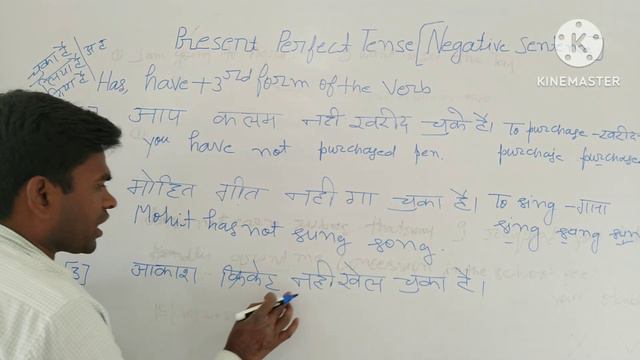 Present Perfect Tense [Negative Senten
KINEMASTER
चुका है
Has, have + 3rd form of the verb
आप कलम नही खरीद चुके है। To purchase - खरीद
you have not purchased pen. purchase purchased
मोहित गीत नही गा चुका है। To sing - गाना
Mohit has not sung song. sing sang sung
[3] आकाश क्रिकेट नही खेल चुका है।